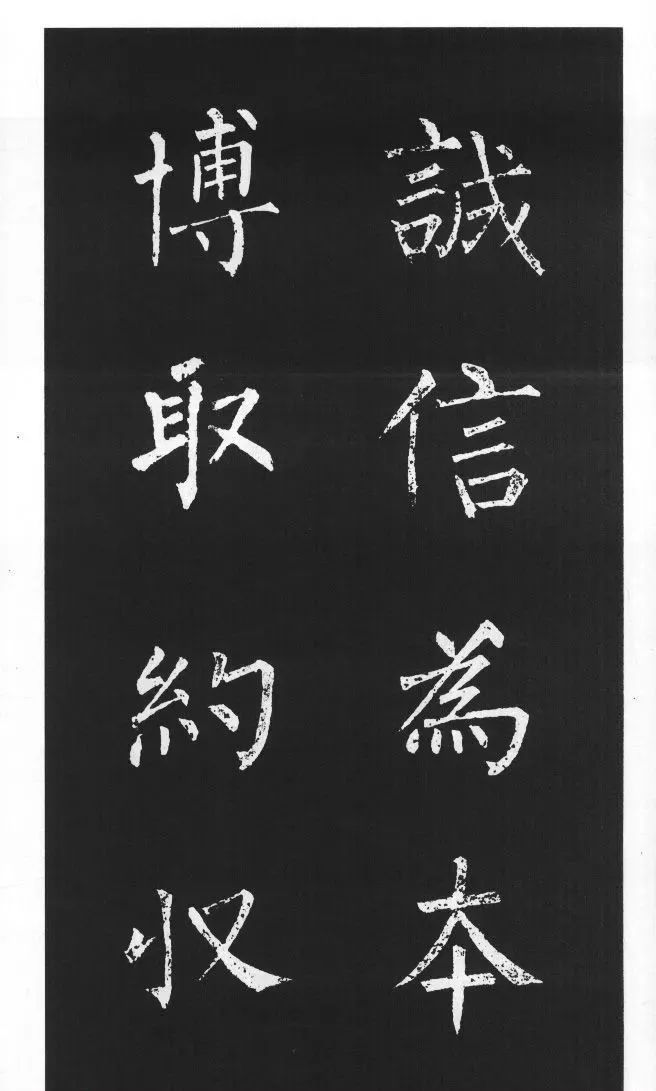 誠信為本
博取約収